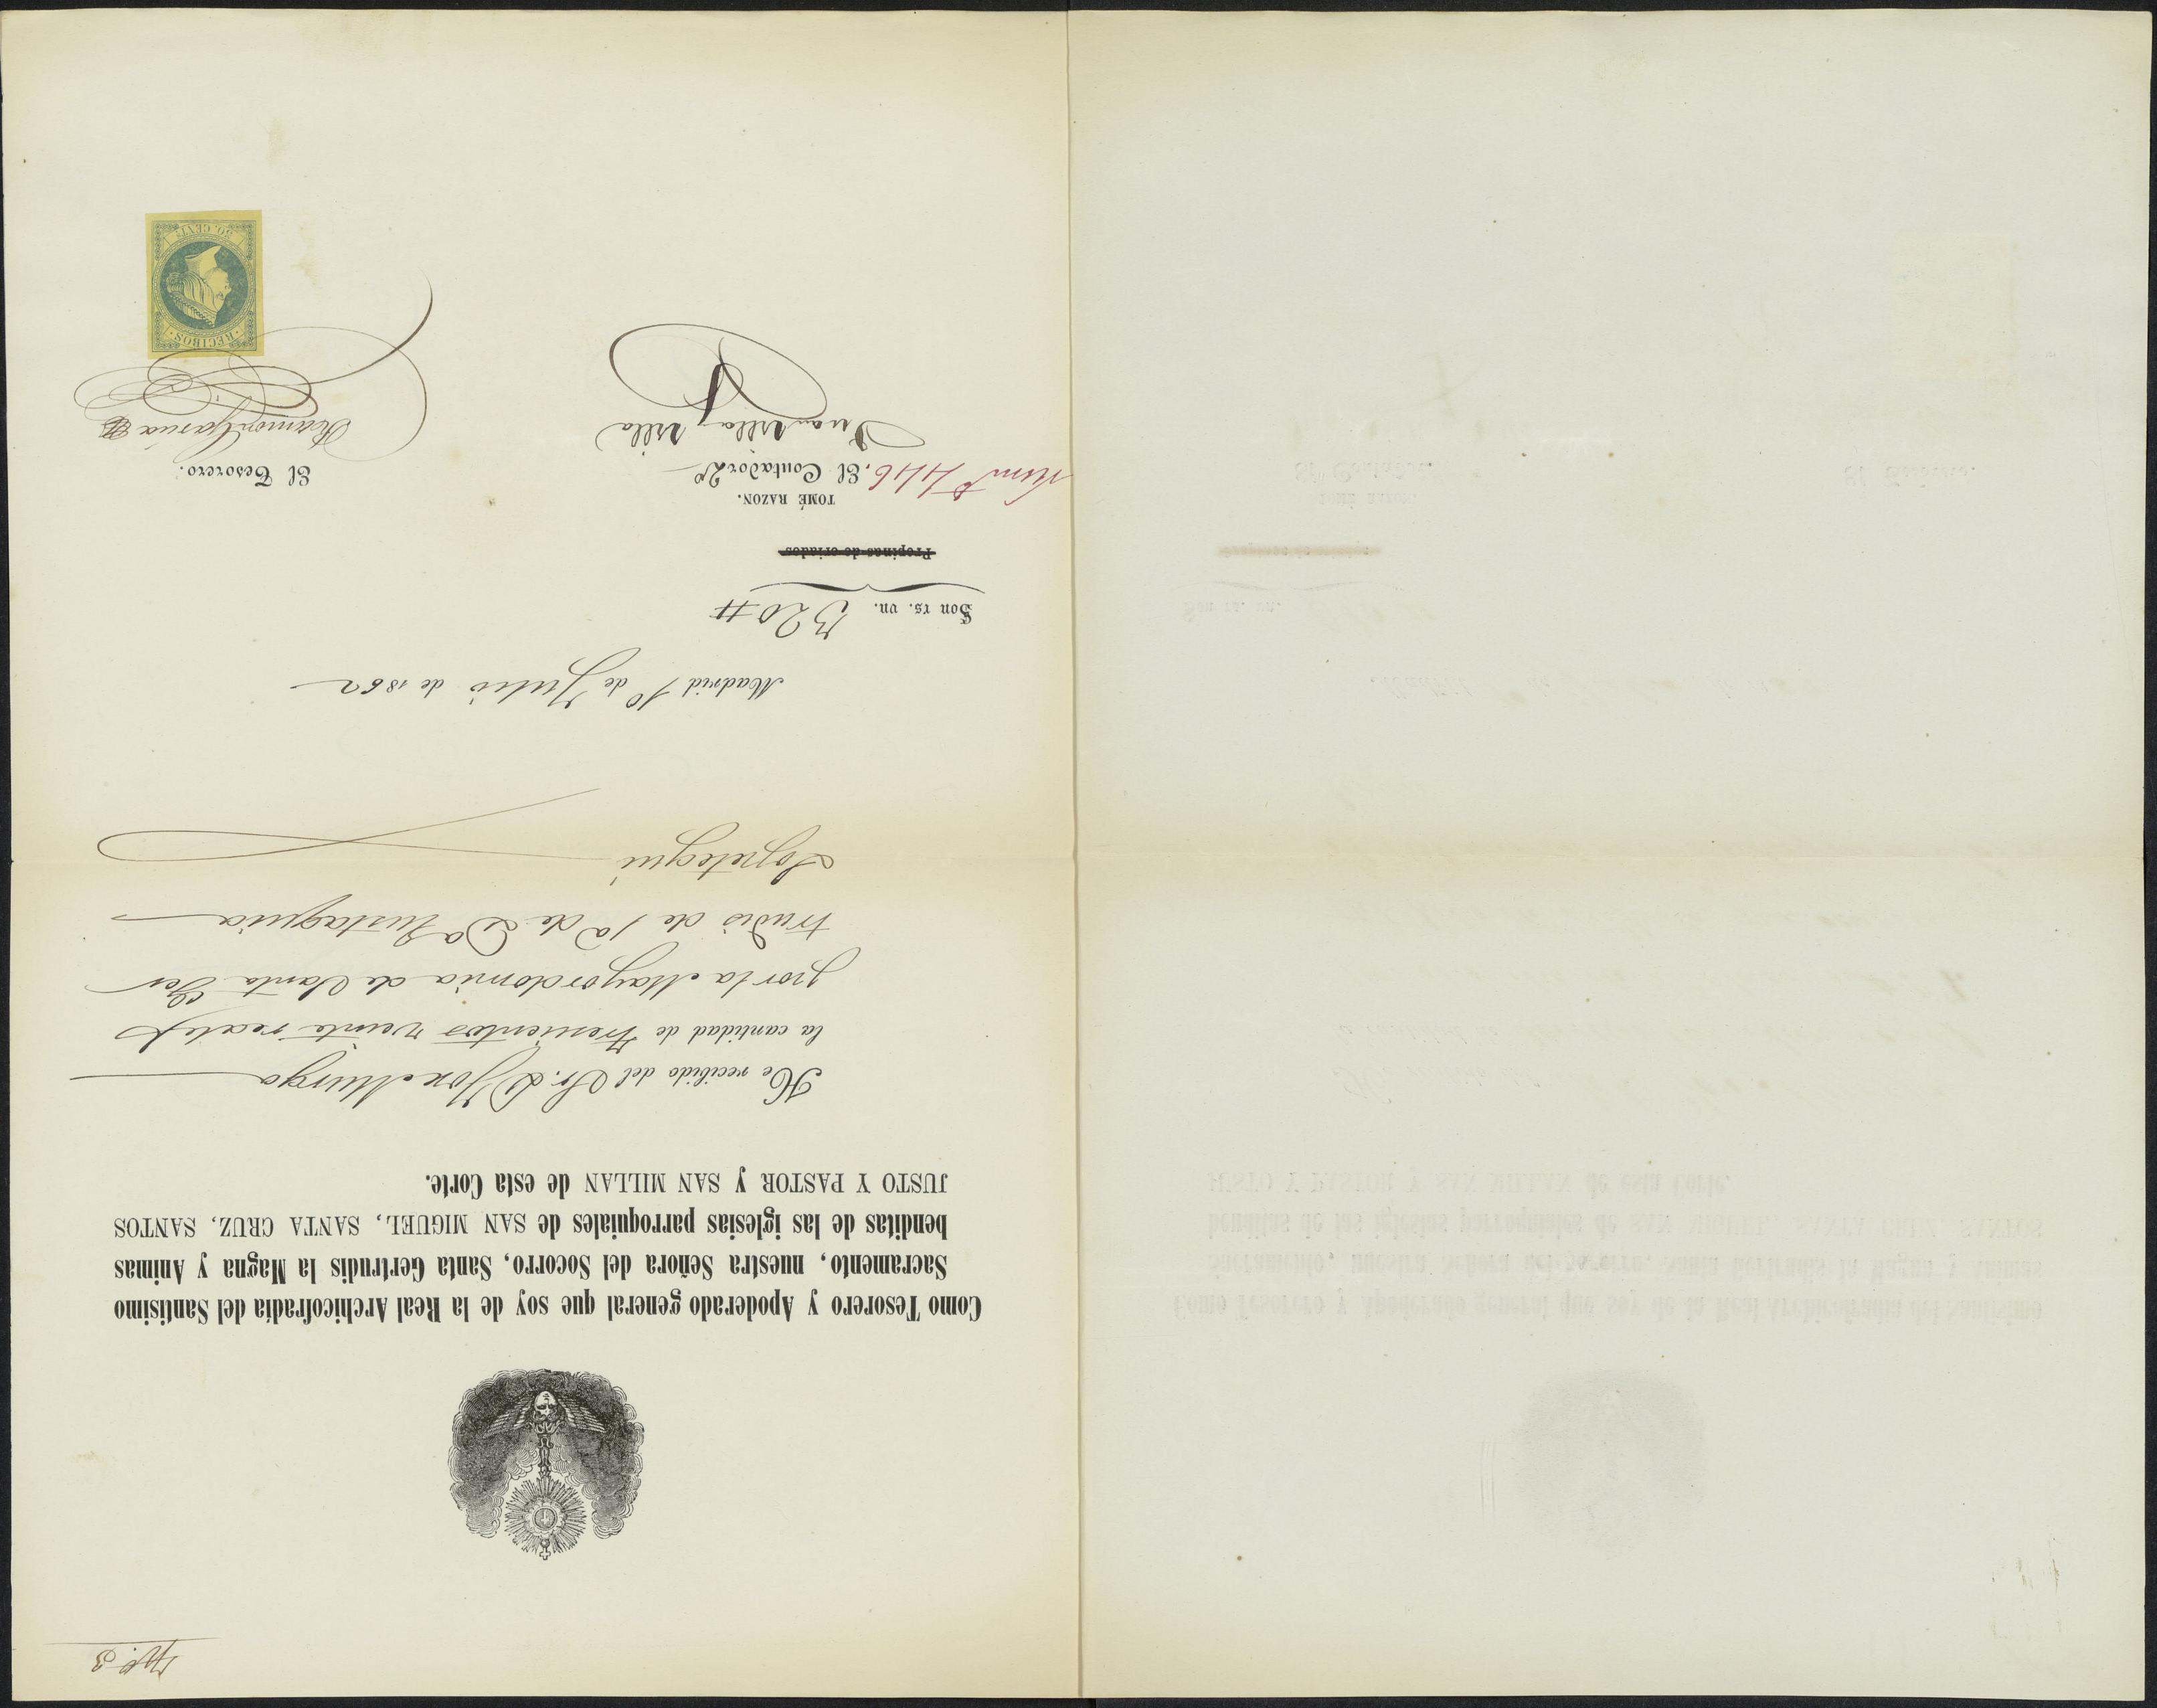 Nº. 3
Como Tesorero y Apoderado general que soy de la Real Archicofradía del Santísimo
Sacramento, nuestra Señora del Socorro, Santa Gertrudis la Magna y Animas
benditas de las iglesias parroquiales de SAN MIGUEL, SANTA CRUZ, SANTOS
JUSTO Y PASTOR y SAN MILLAN de esta Corte.
He recibido del Sr. D. Jose Murga
la cantidad de Trescientos veinte reales
por la Mayordomia de Santa Ger
trudis de 1ª de Dª Eustaquia
Madrid 1º de Julio de 1862
Son rs. vn. 320
Propinas de criados
TOMÉ RAZON.
Numº 446. El Contador 2º
El Tesorero.
Juan Villa y Villa
Ramon Garcia
RECIBOS
50 CENTS